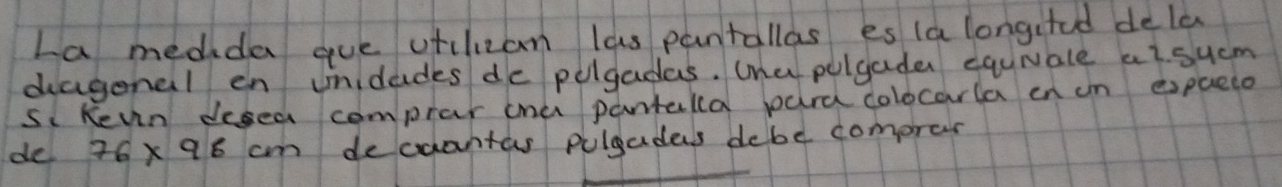 La medida que utilizan las pantallas es la longitud de la
diagonal en unidades de pulgadas. Una pulgada equivale a 2.54cm
si Kevin desea comprar una pantalla para colocarla en un espacio
de 76 x 98 cm de cuantas pulgadas debe comprar